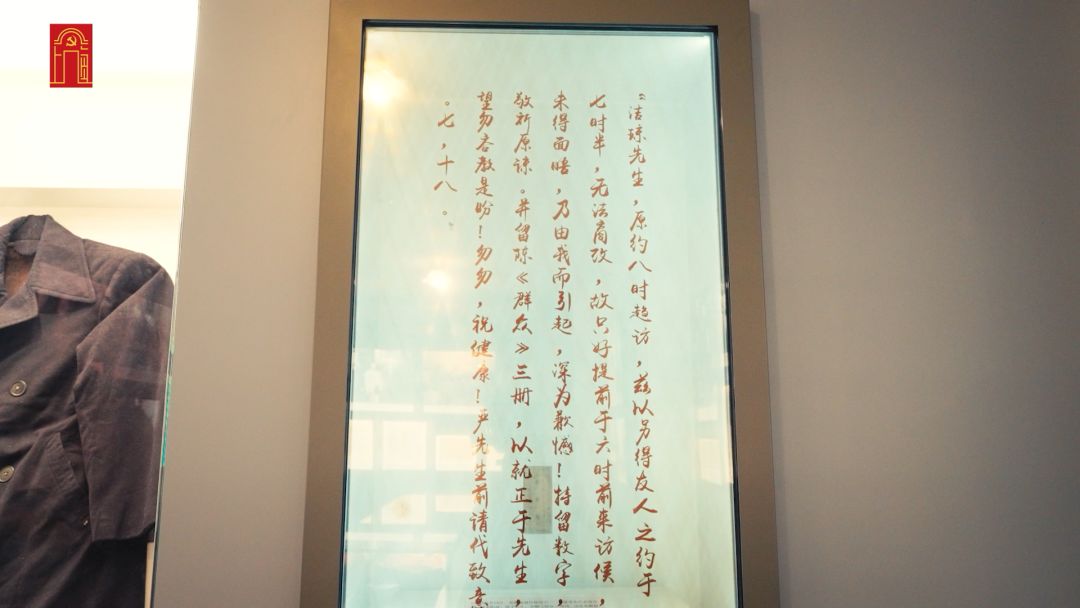 “洁琼先生，原约八时趋访，兹以另得友人之约于
七时半，无法商改，故只好提前于六时前来访候，
未得面晤，乃由我而引起，深为歉憾！特留数字，
敬祈原谅。并留陈《群众》三册，以就正于先生，
望勿吝教是盼！匆匆，祝健康！严先生前请代致意
。七，十八。